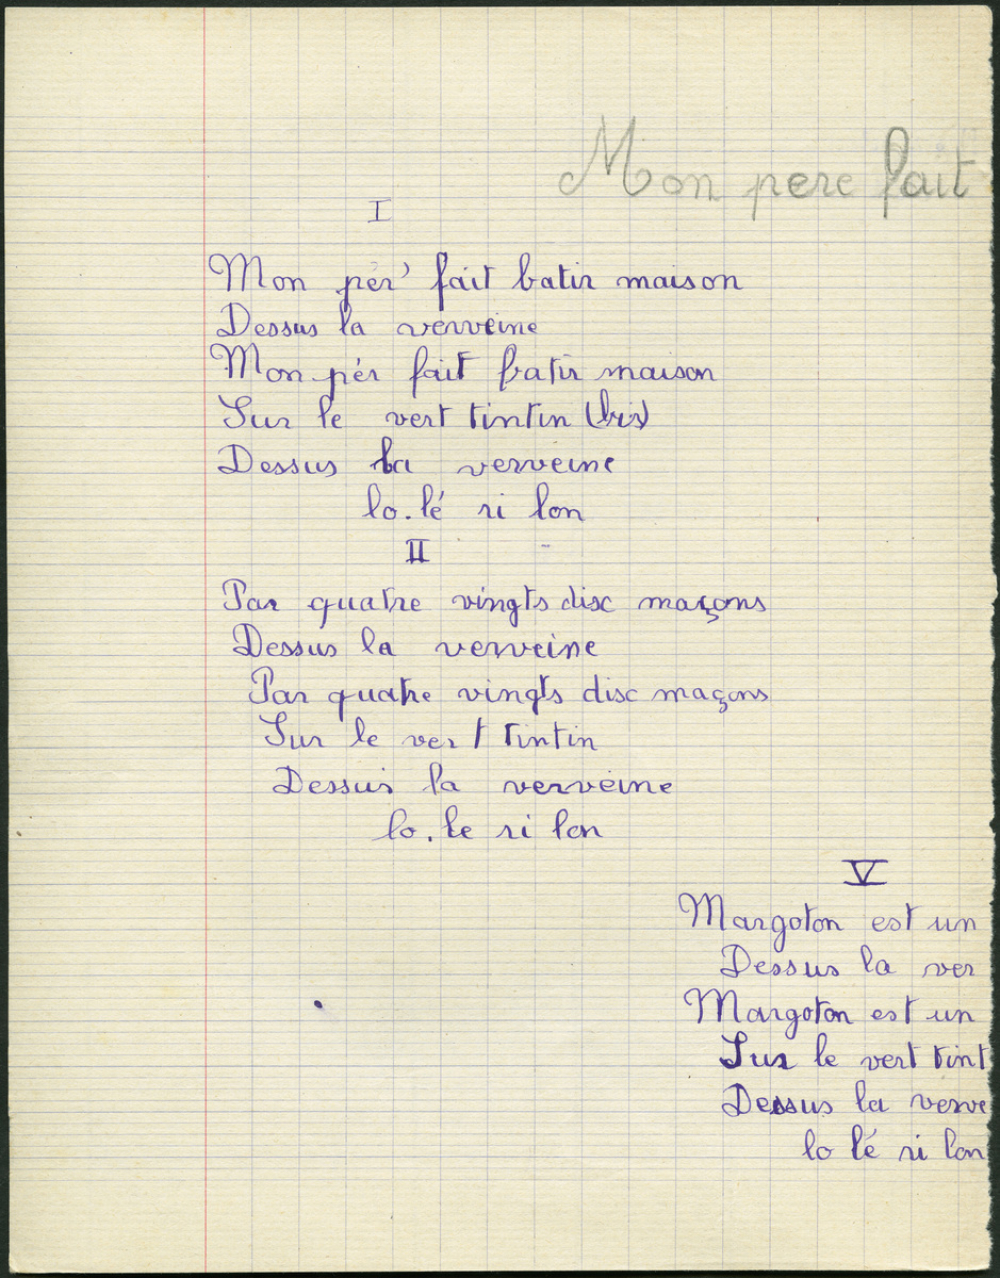 Mon pere fait
I
Mon pér' fait batir maison
Dessus la verveine
Mon pér fait batir maison
Sur le vert tintin (bis)
Dessus la verveine
lo. lé ri lon
II
Par quatre vingts disc maçons
Dessus la verveine
Par quatre vingts disc maçons
Sur le vert tintin
Dessus la verveine
lo. le ri lon
V
Margoton est un
Dessus la ver
Margoton est un
Sur le vert tint
Dessus la verve
lo lé ri lon